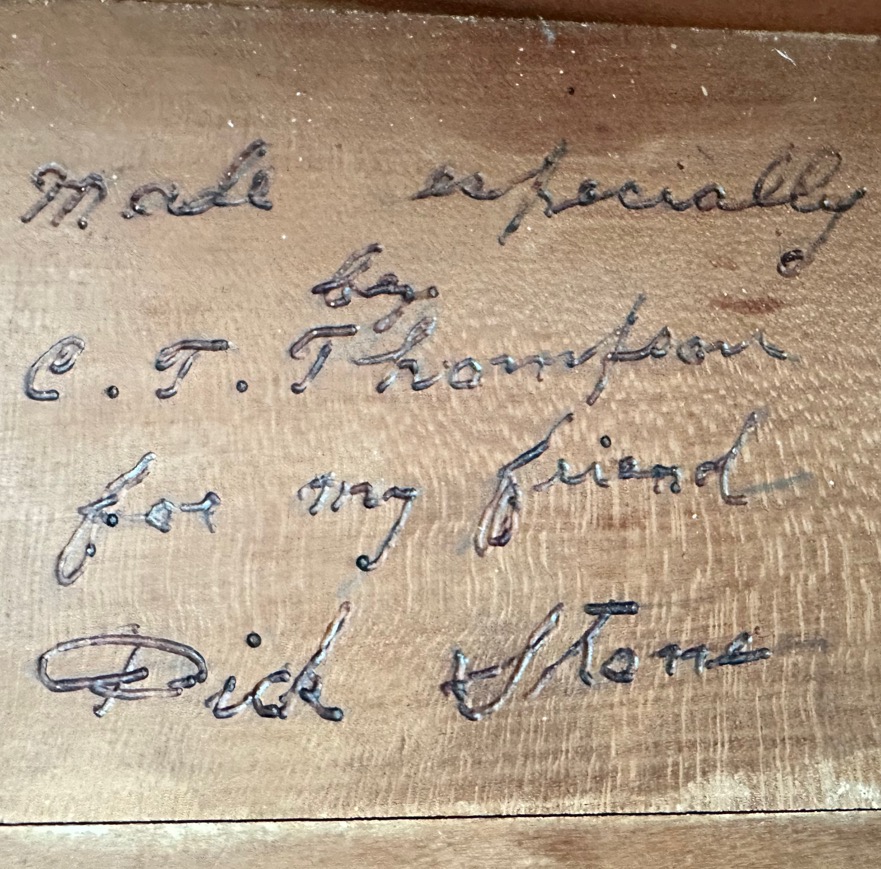 Made especially
by.
C. T. Thompson
for my friend
Dick Stone